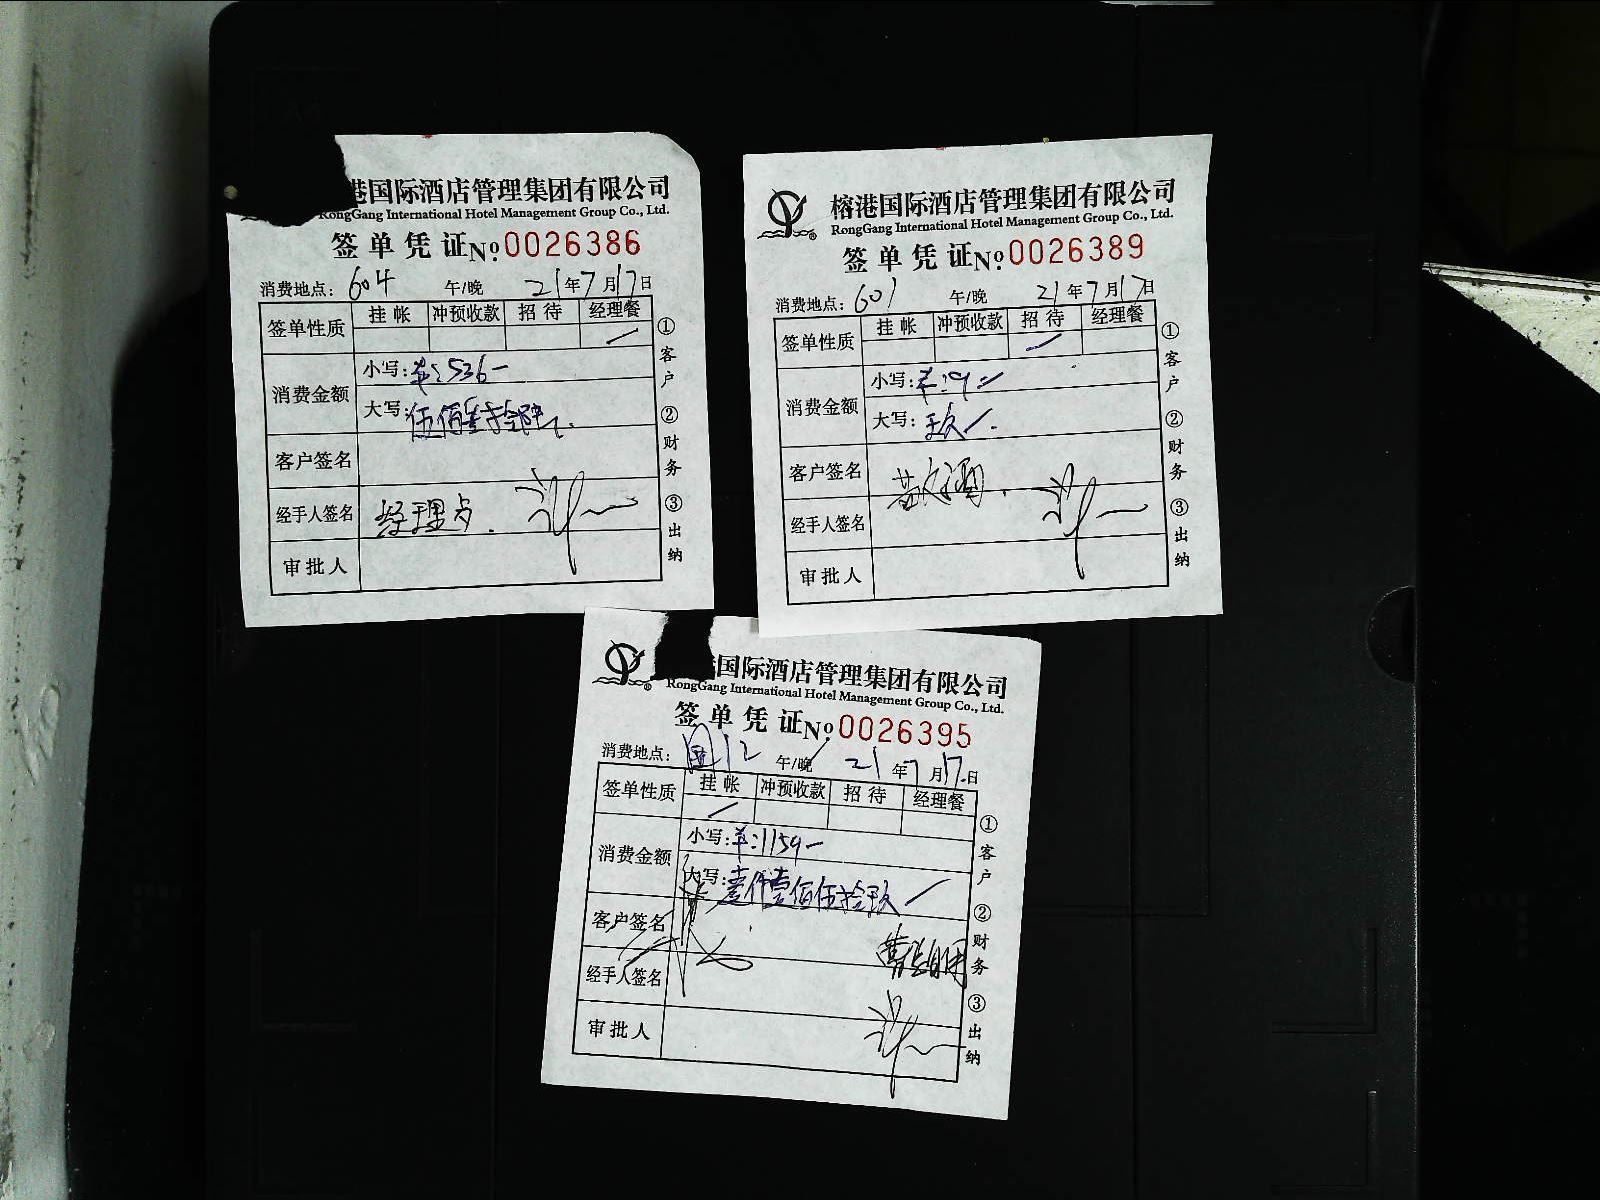 港国际酒店管理集团有限公司
RongGang International Hotel Management Group Co., Ltd.
签单凭证 No. 0026386
消费地点: 604 午/晚 21年7月17日
签单性质 挂帐 冲预收款 招待 经理餐
消费金额 小写: 单:536一
大写: 伍佰叁拾陆
客户签名
经手人签名 经理
审批人
①客户 ②财务 ③出纳
榕港国际酒店管理集团有限公司
RongGang International Hotel Management Group Co., Ltd.
签单凭证 No. 0026389
消费地点: 601 午/晚 21年7月17日
签单性质 挂帐 冲预收款 招待 经理餐
消费金额 小写: 单:9
大写: 玖
客户签名
经手人签名
审批人
①客户 ②财务 ③出纳
国际酒店管理集团有限公司
RongGang International Hotel Management Group Co., Ltd.
签单凭证 No. 0026395
消费地点: 12 午/晚 21年7月17日
签单性质 挂帐 冲预收款 招待 经理餐
消费金额 小写: 单:1159一
大写: 壹仟壹佰伍拾玖
客户签名
经手人签名
审批人
①客户 ②财务 ③出纳